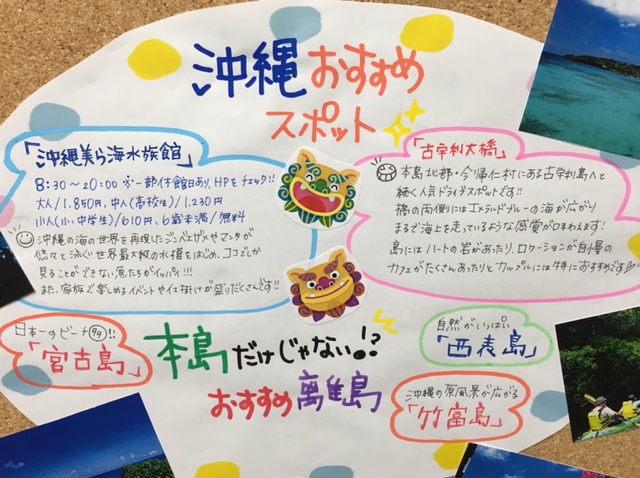 沖縄おすすめ
スポット
「沖縄美ら海水族館」
8:30～20:00 ※一部休館日あり、HPをチェック!!
大人/1,850円、中人(高校生)/1,230円
小人(小・中学生)/610円、6歳未満/無料
沖縄の海の世界を再現したジンベエザメやマンタが
悠々と泳ぐ世界最大級の水槽をはじめ、ココでしか
見ることができない魚たちがイッパイ!!!
また、家族で楽しめるイベントやイエ掛けが盛りだくさんです!!
「古宇利大橋」
本島北部・今帰仁村にある古宇利島へと
続く人気ドライブスポットです!!
橋の両側にはエメラルドブルーの海が広がり
まるで海上を走っているような感覚が味わえます!
島にはハートの岩があったり、ロケーションが自慢の
カフェがたくさんあったりとカップルには特におすすめです
日本一のビーチ!!
「宮古島」
本島だけじゃない!?
おすすめ離島
自然がいっぱい
「西表島」
沖縄の原風景が広がる
「竹富島」